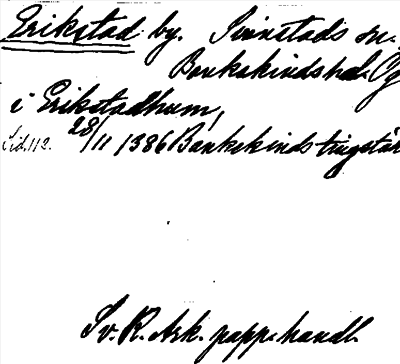 Erikstad by. Sinnstads sn.
Bankekinds hd. Ög
i Erikstadhum,
Sid. 112. 28/11 1386 Bankekinds tingstä
Sv. R. Ark. papp. handl.